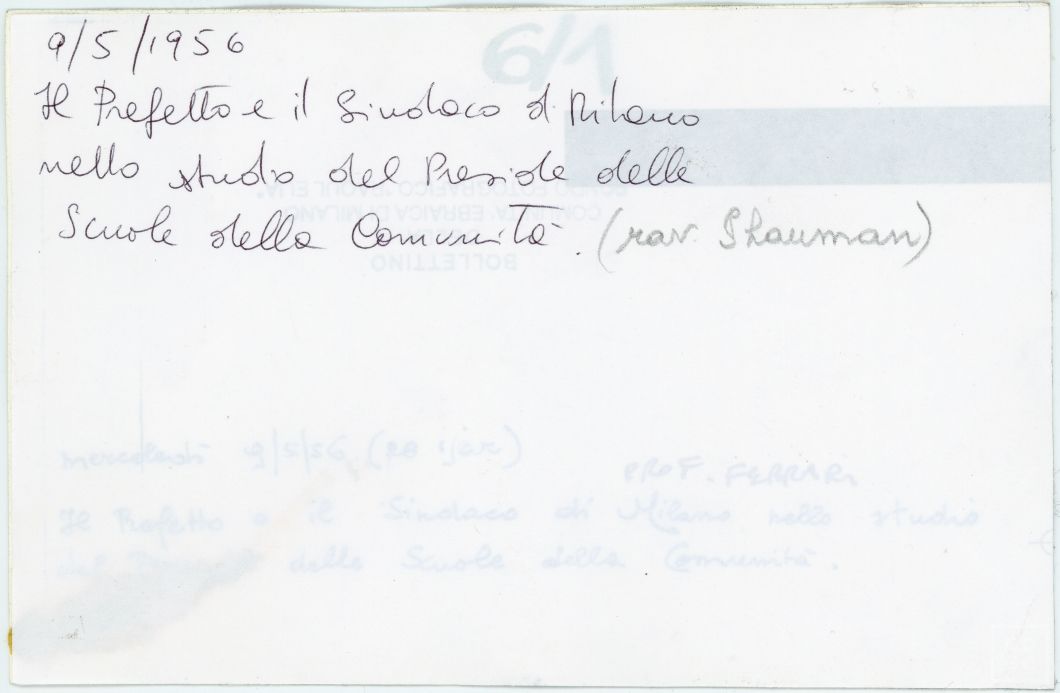 6/1
9/5/1956
Il Prefetto e il Sindaco di Milano
nello studio del Preside delle
Scuole della Comunità. (rav. Shauman)
FONDO FOTOGRAFICO "RAOUL ELIA"
COMUNITA' EBRAICA DI MILANO
BOLLETTINO
mercoledì 9/5/56 (28 ijar)
PROF. FERRARI
Il Prefetto e il Sindaco di Milano nello studio
del delle Scuole della Comunità.